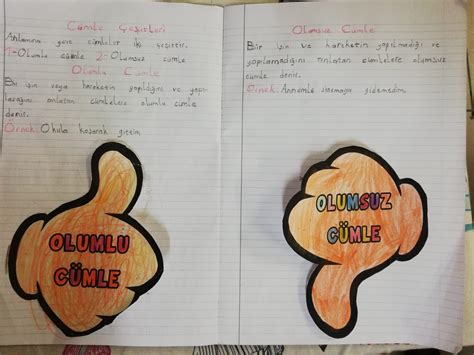 Cümle Çeşitleri
Anlamına göre cümleler iki çeşittir.
1-Olumlu cümle 2-Olumsuz cümle
Olumlu Cümle
Bir işin veya hareketin yapıldığını ve yapı-
lacağını anlatan cümlelere olumlu cümle
denir.
Örnek: Okula koşarak gittim.
OLUMLU
CÜMLE
Olumsuz Cümle
Bir işin ve hareketin yapılmadığı ve
yapılamadığını anlatan cümlelere olumsuz
cümle denir.
Örnek: Annemle sinemaya gidemedim.
OLUMSUZ
CÜMLE